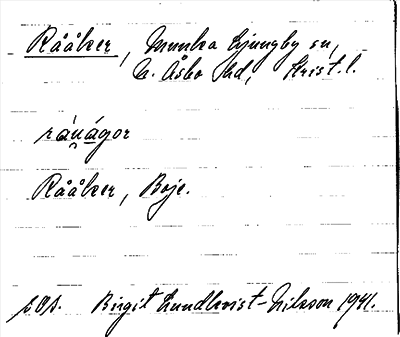 Rååker, Munka Ljungby sn,
N. Åsbo hd, Krist. l.
rá̯ṉágor
Rååker, Boje.
s. 01. Birgit Lundkvist-Nilsson 1941.